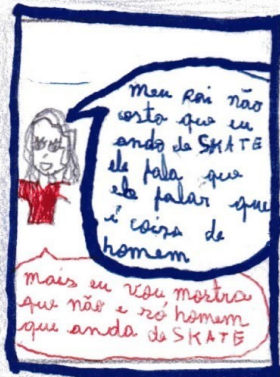 meu pai não
gosta que eu
ando de SKATE
ele fala que
ele falar que
é coisa de
homem
mais eu vou mostra
que não e só homem
que anda de SKATE